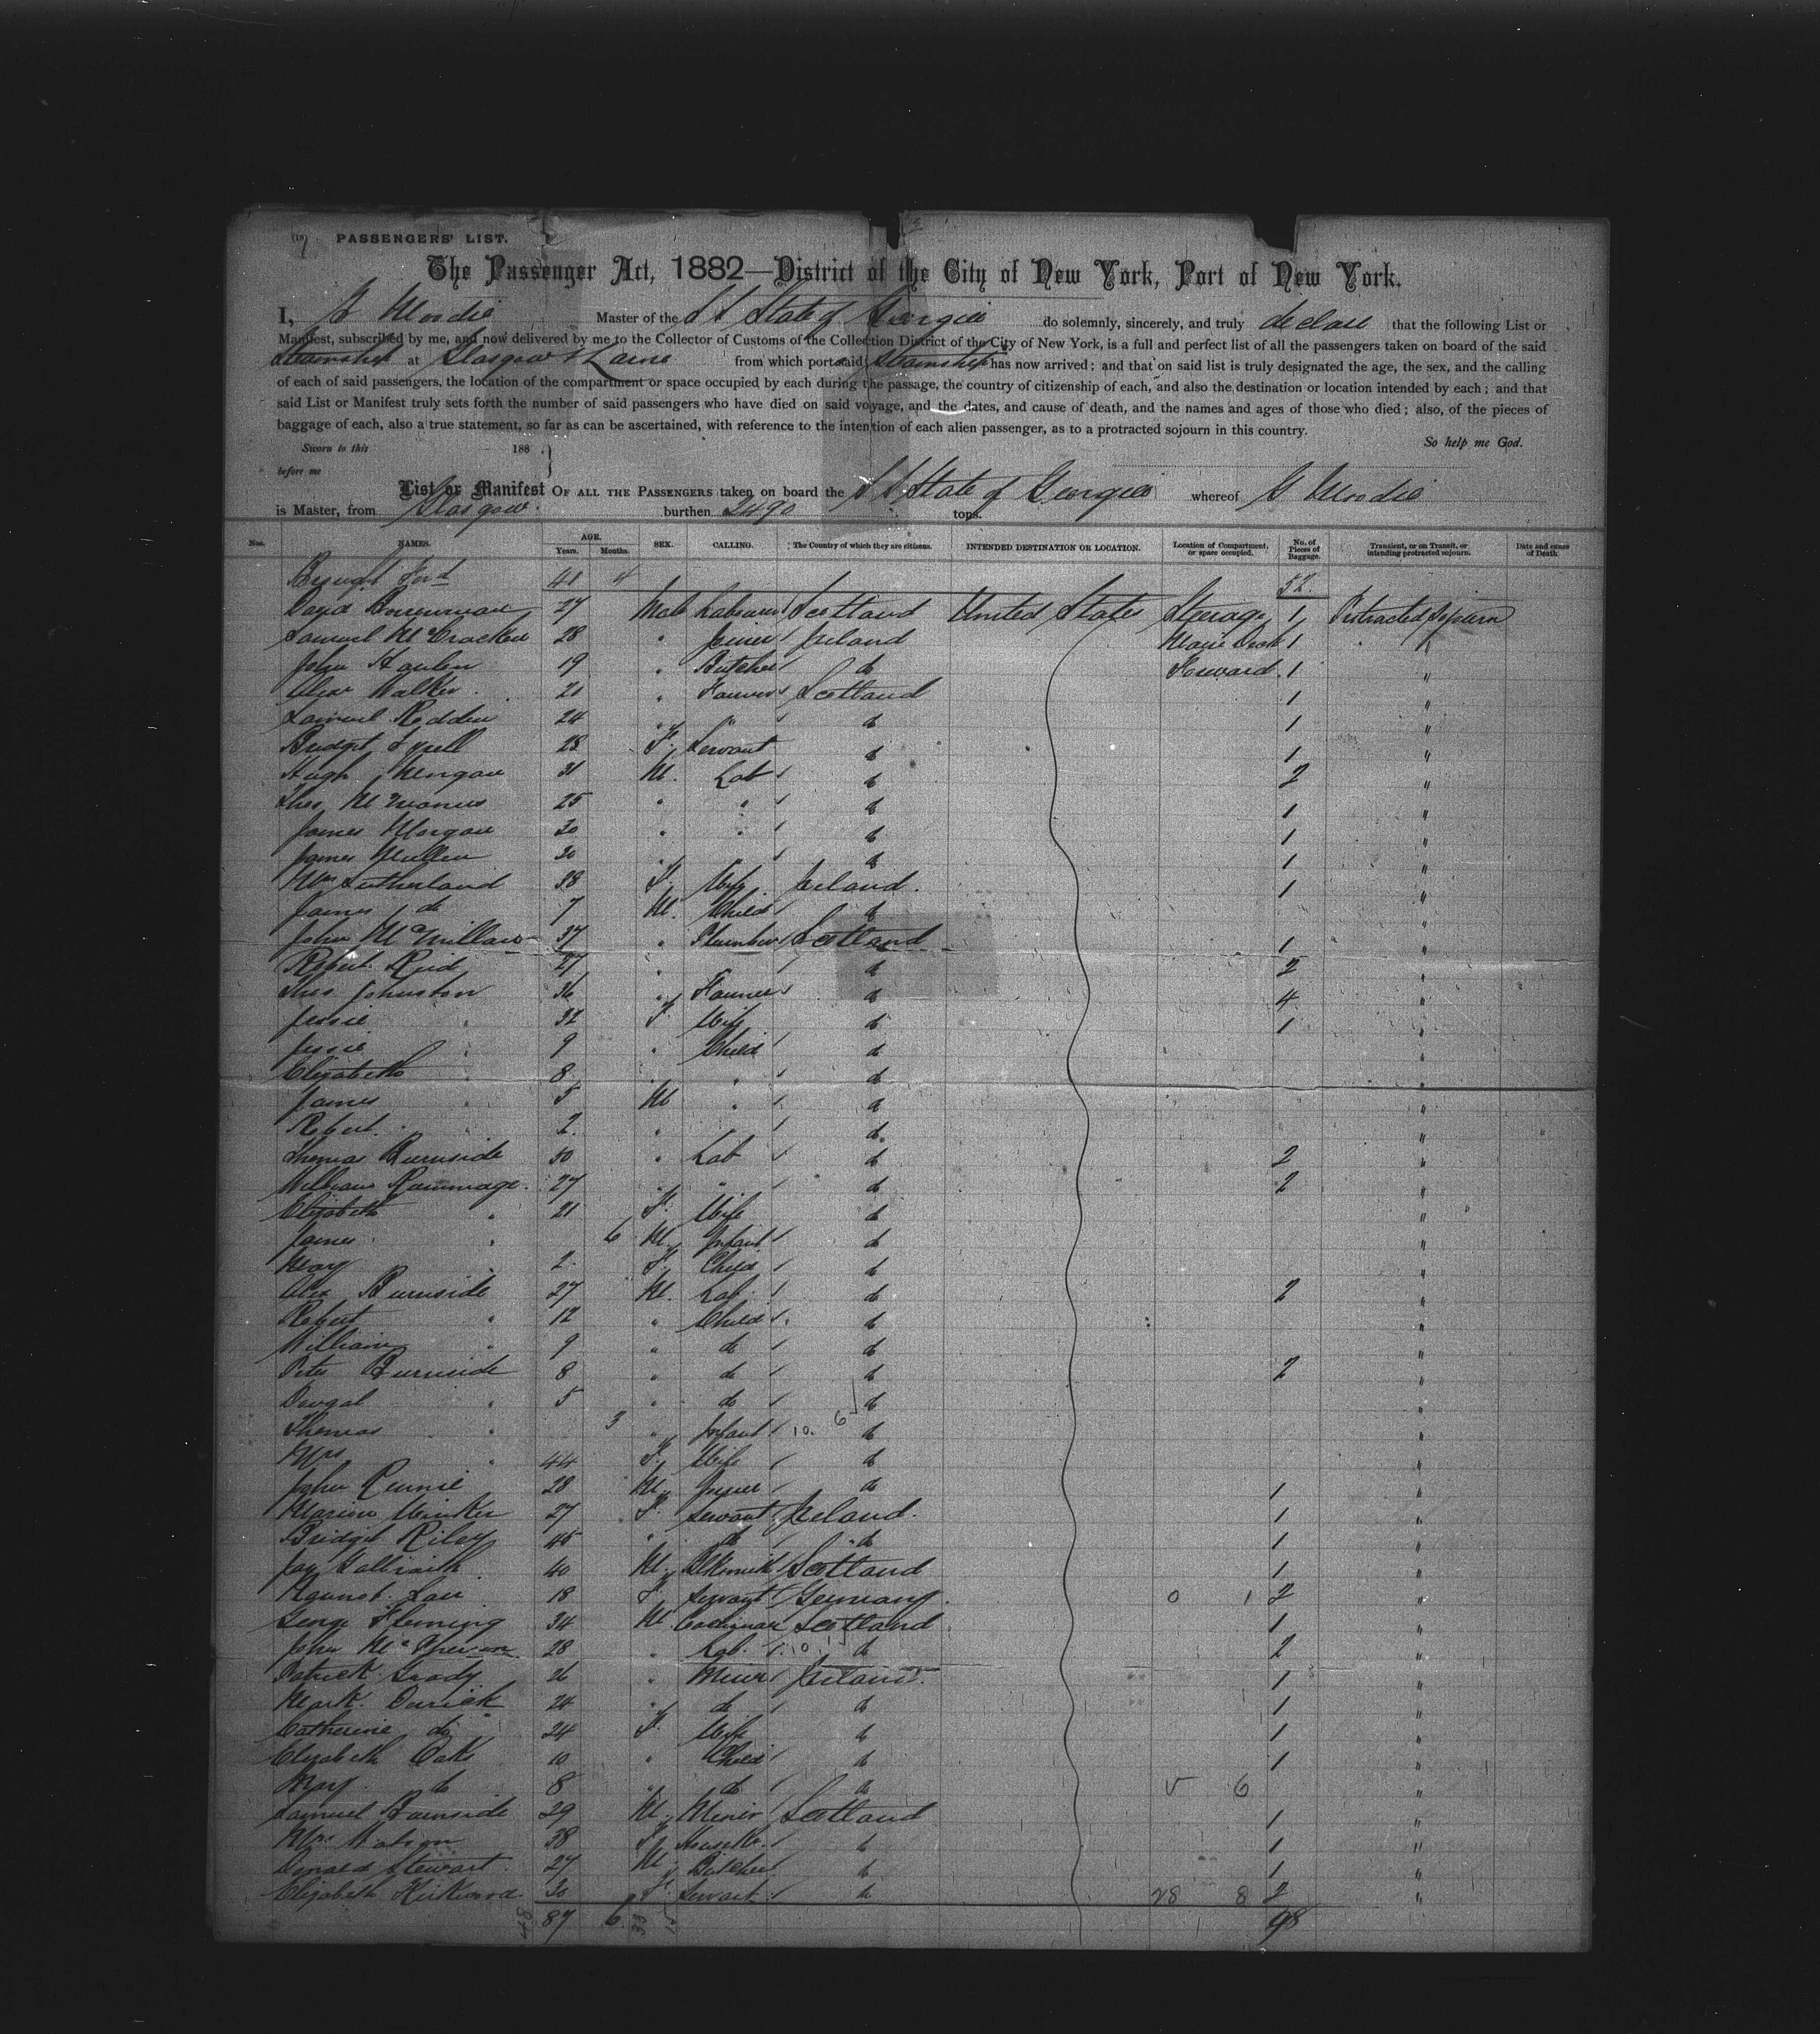 PASSENGERS' LIST.
The Passenger Act, 1882—District of the City of New York, Port of New York.
I, G Moodie Master of the S S State of Georgia do solemnly, sincerely, and truly declare that the following List or
Manifest, subscribed by me, and now delivered by me to the Collector of Customs of the Collection District of the City of New York, is a full and perfect list of all the passengers taken on board of the said
Steamship at Glasgow & Larne from which port said Steamship has now arrived; and that on said list is truly designated the age, the sex, and the calling
of each of said passengers, the location of the compartment or space occupied by each during the passage, the country of citizenship of each, and also the destination or location intended by each; and that
said List or Manifest truly sets forth the number of said passengers who have died on said voyage, and the dates, and cause of death, and the names and ages of those who died; also, of the pieces of
baggage of each, also a true statement, so far as can be ascertained, with reference to the intention of each alien passenger, as to a protracted sojourn in this country. So help me God.
Sworn to this 188
before me
List or Manifest OF ALL THE PASSENGERS taken on board the S S State of Georgia whereof G Moodie
is Master, from Glasgow burthen 2490 tons.
Nos. NAMES. AGE. Years. Months. SEX. CALLING. The Country of which they are citizens. INTENDED DESTINATION OR LOCATION. Location of Compartment, or space occupied. No. of Pieces of Baggage. Transient, or on Transit, or intending protracted sojourn. Date and cause of Death.
Brought Ford 41 4 52
David 27 Male Labourer Scotland United States Steerage 1 Protracted Sojourn
Samuel McCracken 28 " Joiner Ireland Main Deck 1 "
John Hanlon 19 " Butcher do Forward 1 "
Alex Walker 21 " Farmer Scotland 1 "
Samuel Redden 24 " " do 1 "
Bridget Tyrell 28 F. Servant do 1 "
Hugh Morgan 31 M. Lab do 2 "
Thos McManus 25 " " do 1 "
James Morgan 30 " " do 1 "
James Mullen 30 " do 1 "
Mrs Sutherland 38 F. Wife Ireland. 1 "
James do 7 M. Child do "
John McMillan 37 " Plumber Scotland 1 "
Robert Reid 27 " do 2 "
Thos Johnston 36 " Farmer do 4 "
Jessie " 32 F. Wife do 1 "
Jessie " 9 " Child do "
Elizabeth " 8 " " do "
James " 5 M " do "
Robert " 2 " do "
Thomas Burnside 50 " Lab do 2 "
William Rammage 27 " " do 2 "
Elizabeth " 21 F. Wife do "
James " 6 M. Infant do "
May " 2 F. Child do "
Alex Burnside 27 M. Lab do 2 "
Robert " 12 " Child do "
William " 9 " do do "
Peter Burnside 8 " do do 2 "
Dougal " 5 " do do "
Thomas " 3 " Infant 10. 6 do "
Mrs " 44 F. Wife do "
John Rennie 28 M. Joiner do 1 "
Marion 27 F. Servant Ireland. 1 "
Bridget Riley 45 " do do 1 "
Jas Galbraith 40 M. Blksmith Scotland 1 "
Lau 18 F Servant Germany 0 1 2 "
George Fleming 34 M Scotland 1 "
John McPherson 28 " Lab. 10 do 2 "
Patrick Grady 26 " Miner Ireland. 1 "
Mark 24 " do do 1 "
Catherine do 24 F. Wife do 1 "
Elizabeth Oaks 10 " Child do 1 "
Mary do 8 " do do 5 6 "
Samuel Burnside 29 M. Miner Scotland 1 "
Mrs Watson 38 F. do 1 "
Donald Stewart 27 M Butcher do 1 "
Elizabeth Kirkwood 30 F. Servant do 28 8 2 "
48 87 6 98